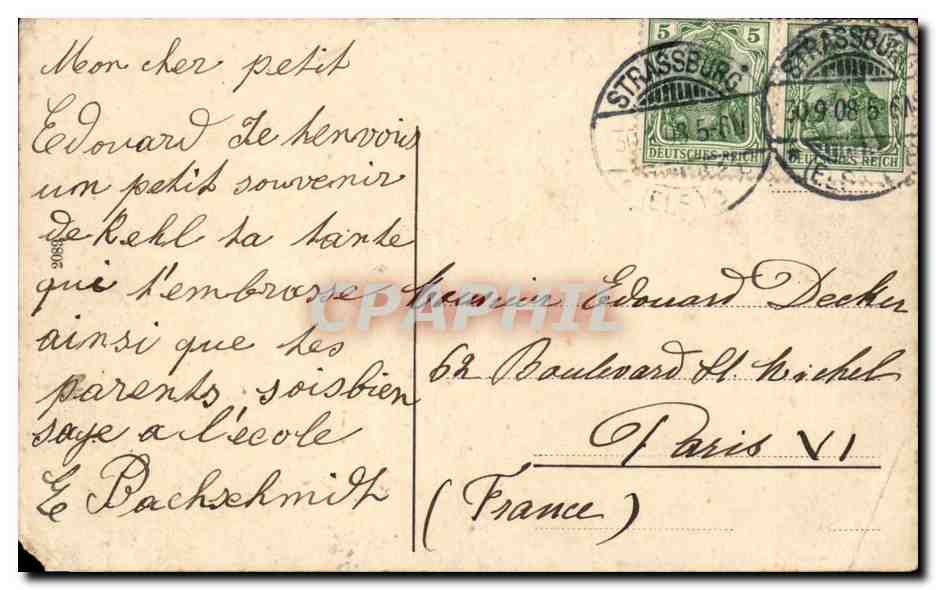 Mon cher petit
Edouard Je t'envois
un petit souvenir
de Kehl ta tante
qui t'embrasse
ainsi que tes
parents sois bien
sage a l'école
E Bachschmidt
2083
5 5
STRASSBURG
8 5-6N
DEUTSCHES REICH
(ELS)
STRASSBURG
30.9.08.5-6N
REICH
(ELS
Monsieur Edouard Decker
62 Boulevard St. Michel
Paris VI
(France)
CPAPHIL